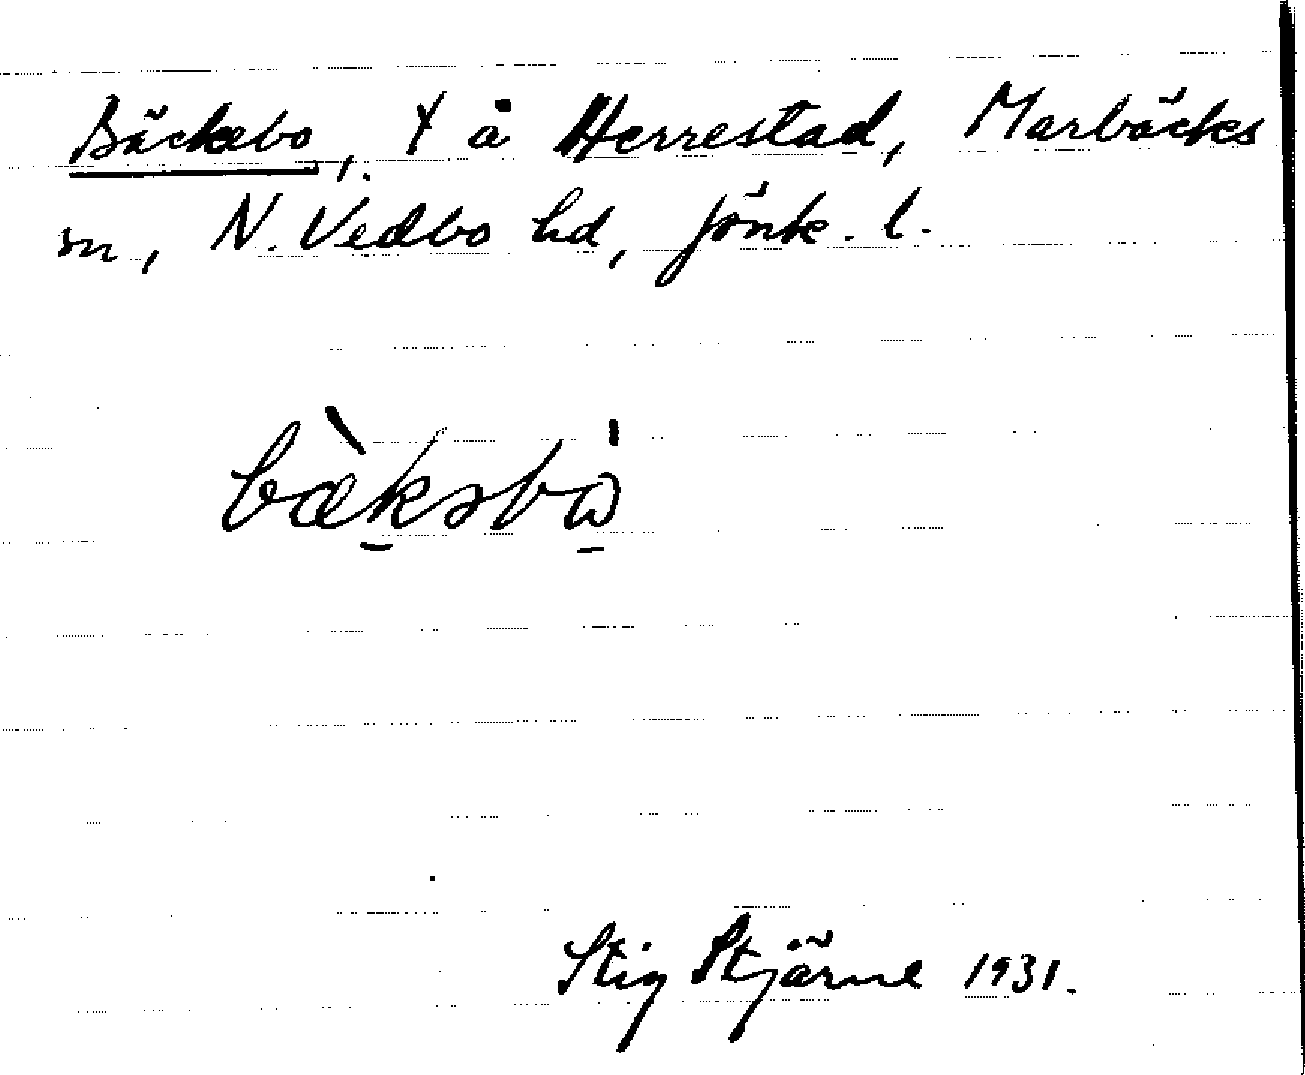 Bäckebo, † å Herrestad, Marbäcks
sn, N. Vedbo hd, Jönk. l.
bæ̀kəbὼ
Stig Stjärne 1931.